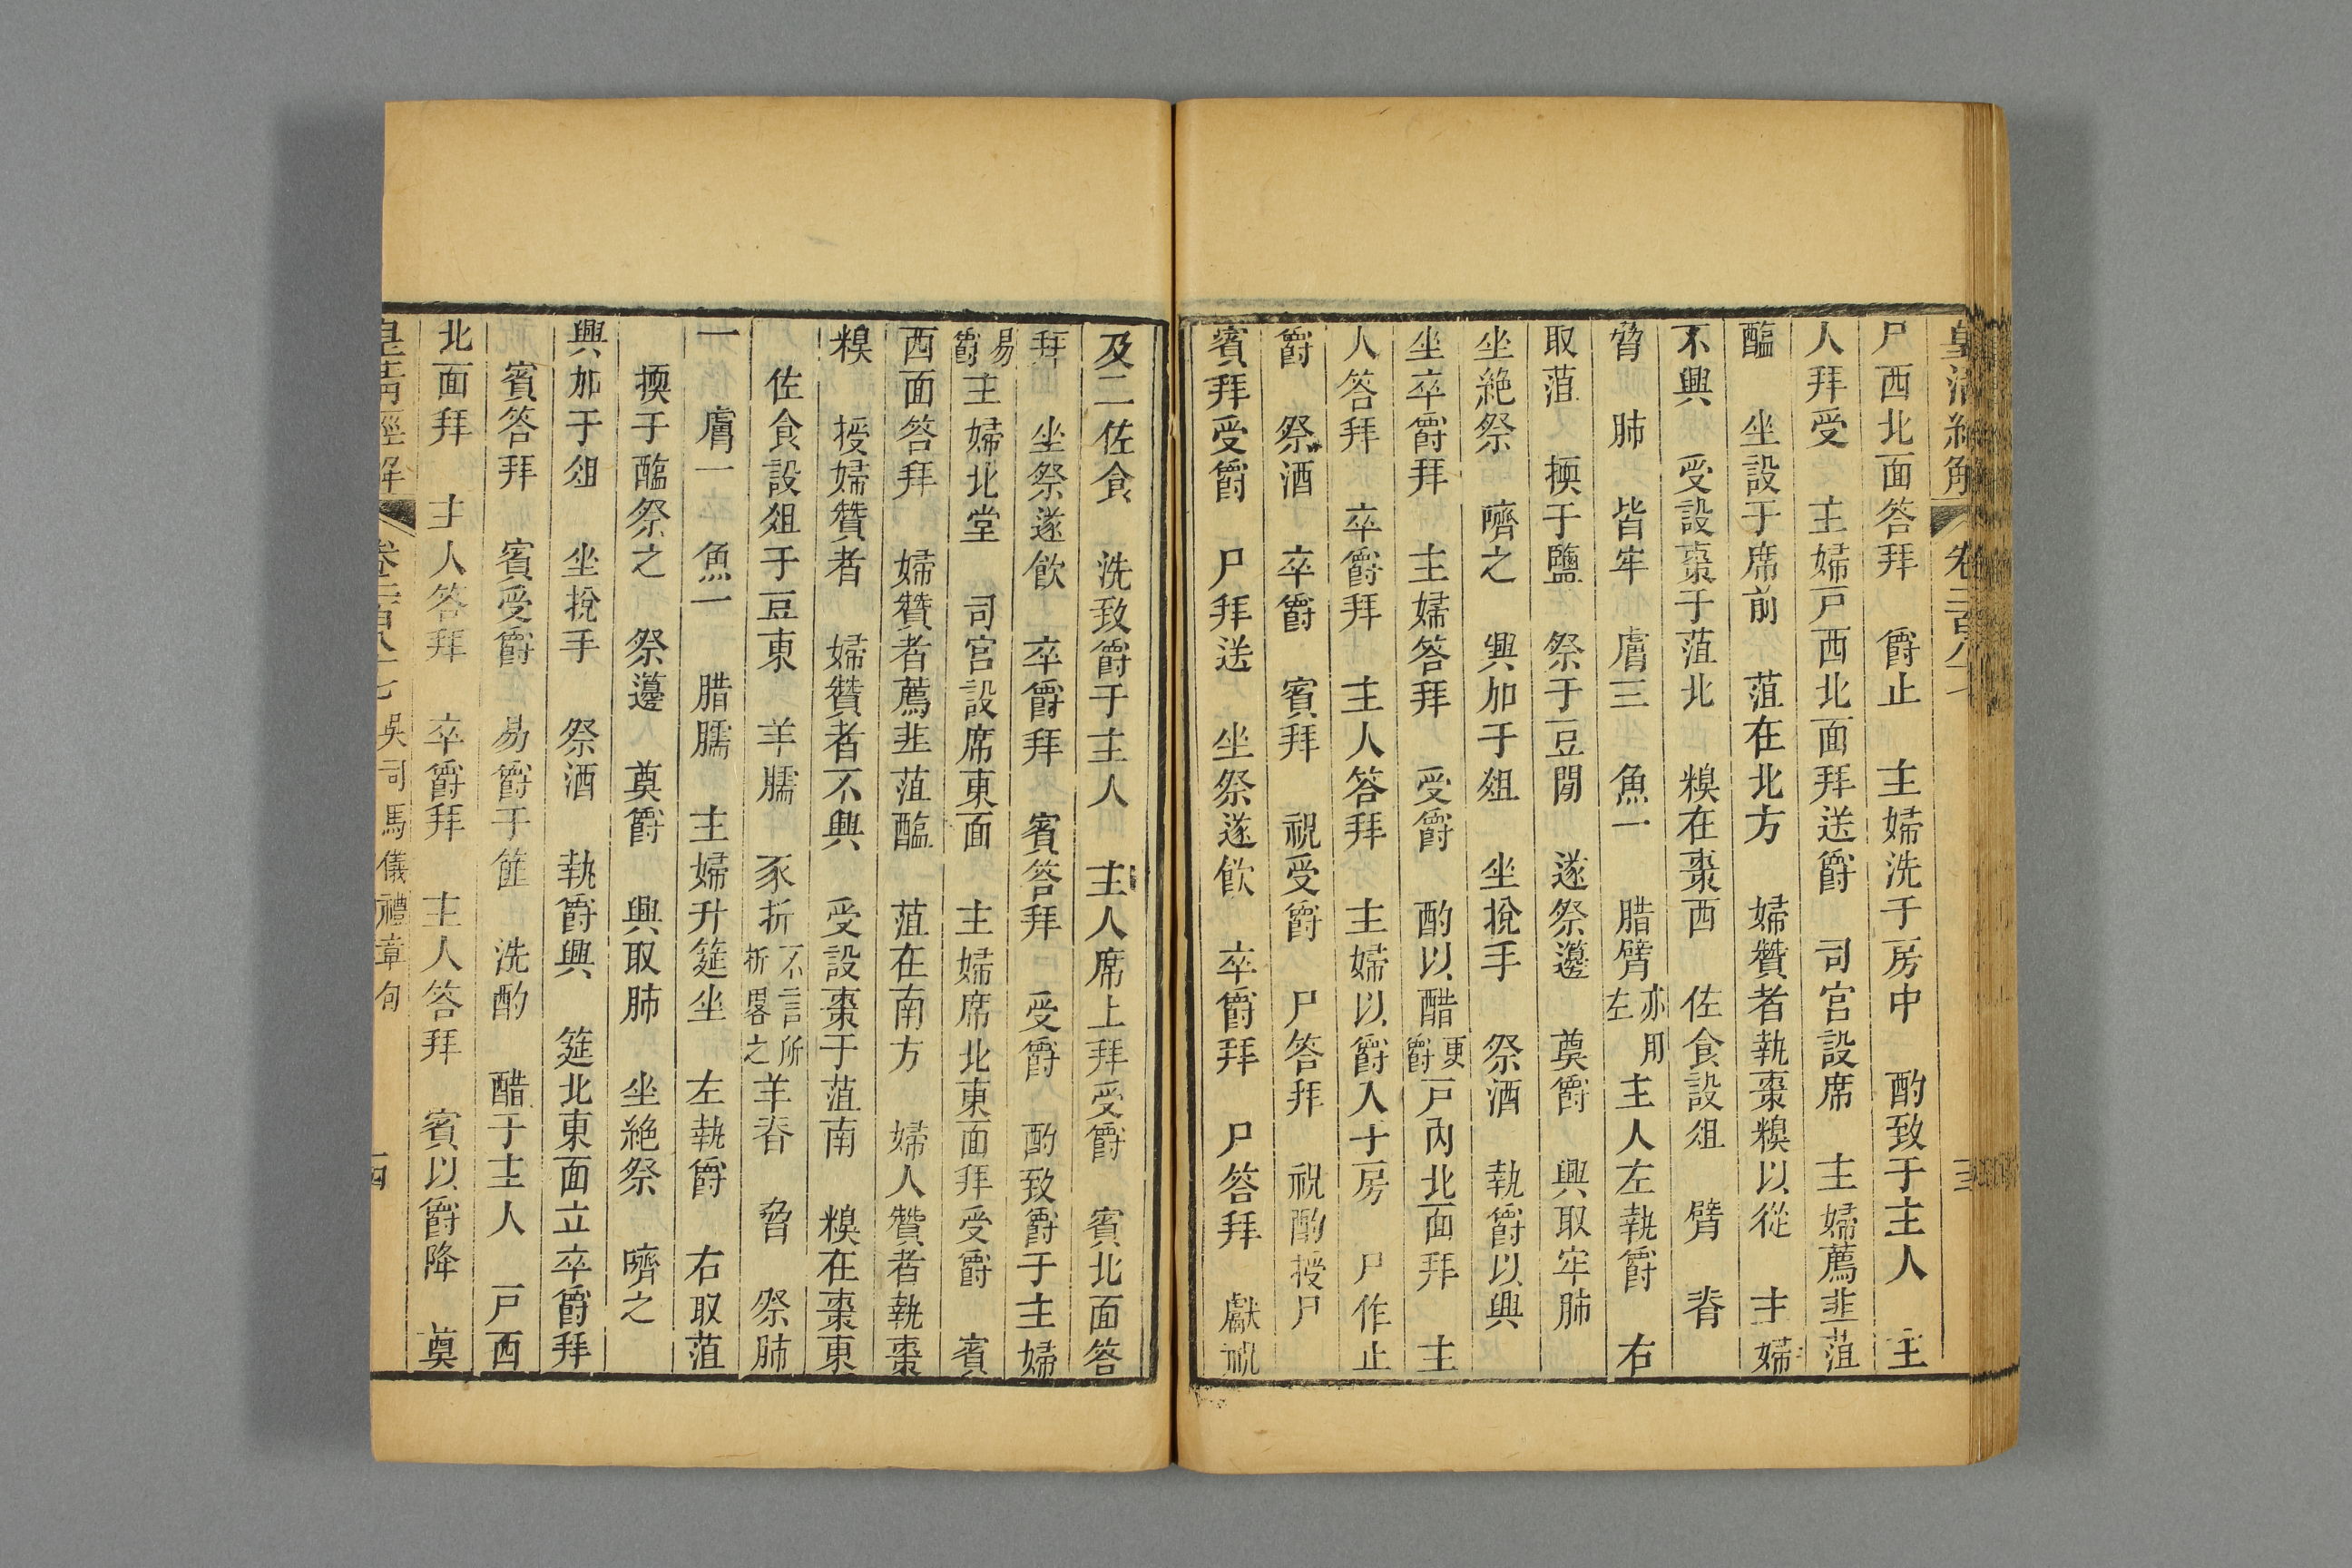 皇清經解 卷二百八十七 三
尸西北面答拜 爵止 主婦洗于房中 酌致于主人 主
人拜受 主婦戸西北面拜送爵 司宮設席 主婦薦韭菹
醢 坐設于席前 菹在北方 婦贊者執棗糗以從 主婦
不興 受設棗于菹北 糗在棗西 佐食設俎 臂 脊
脅 肺 皆牢 膚三 魚一 腊臂亦用左 主人左執爵 右
取菹 㨎于醢 祭于豆閒 遂祭籩 奠爵 興取牢肺
坐絶祭 嚌之 興加于俎 坐挩手 祭酒 執爵以興
坐卒爵拜 主婦答拜 受爵 酌以醋更爵 戸內北面拜 主
人答拜 卒爵拜 主人答拜 主婦以爵入于房 尸作止
爵 祭酒 卒爵 賓拜 祝受爵 尸答拜 祝酌授尸
賓拜受爵 尸拜送 坐祭遂飮 卒爵拜 尸答拜 獻祝
及二佐食 洗致爵于主人 主人席上拜受爵 賓北面答
拜 坐祭遂飮 卒爵拜 賓答拜 受爵 酌致爵于主婦
易爵 主婦北堂 司宮設席東面 主婦席北東面拜受爵 賓
西面答拜 婦贊者薦韭菹醢 菹在南方 婦人贊者執棗
糗 授婦贊者 婦贊者不興 受設棗于菹南 糗在棗東
佐食設俎于豆東 羊臑 豕折不言所折畧之 羊脊 脅 祭肺
一 膚一 魚一 腊臑 主婦升筵坐 左執爵 右取菹
㨎于醢祭之 祭籩 奠爵 興取肺 坐絶祭 嚌之
興加于俎 坐挩手 祭酒 執爵興 筵北東面立卒爵拜
賓答拜 賓受爵 易爵于篚 洗酌 醋于主人 戸西
北面拜 主人答拜 卒爵拜 主人答拜 賓以爵降 奠
皇清經解 卷二百八十七 吳司馬儀禮章句 四